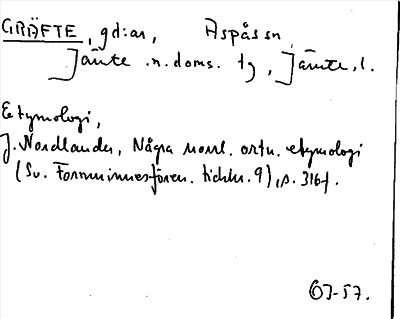 GRÄFTE, gd:ar, Aspås sn,
Jämte n. doms. tg, Jämte, l.
Etymologi,
J. Nordlander, Några norrl. ortn. etymologi
(Sv. Fornminnesfören. tidskr. 9), s. 316f.
OJ-57.